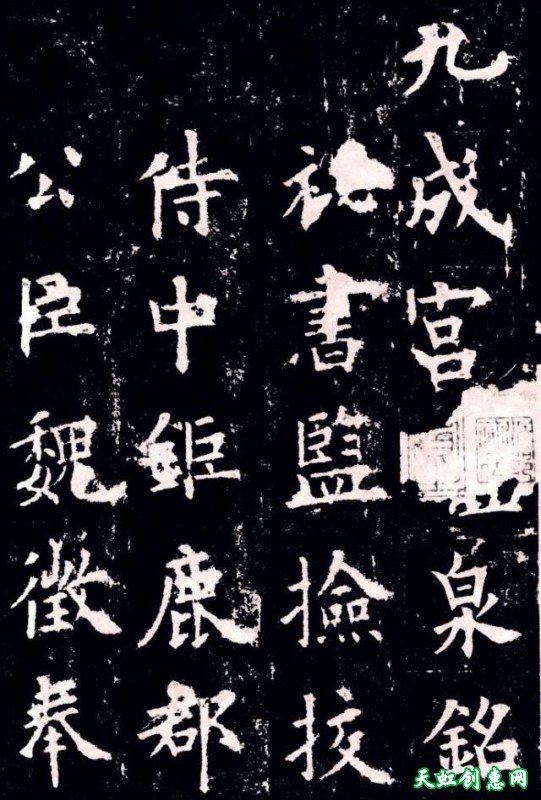 九成宮泉銘
祕書監撿挍
侍中鉅鹿郡
公臣魏徵奉
天虹创惠网